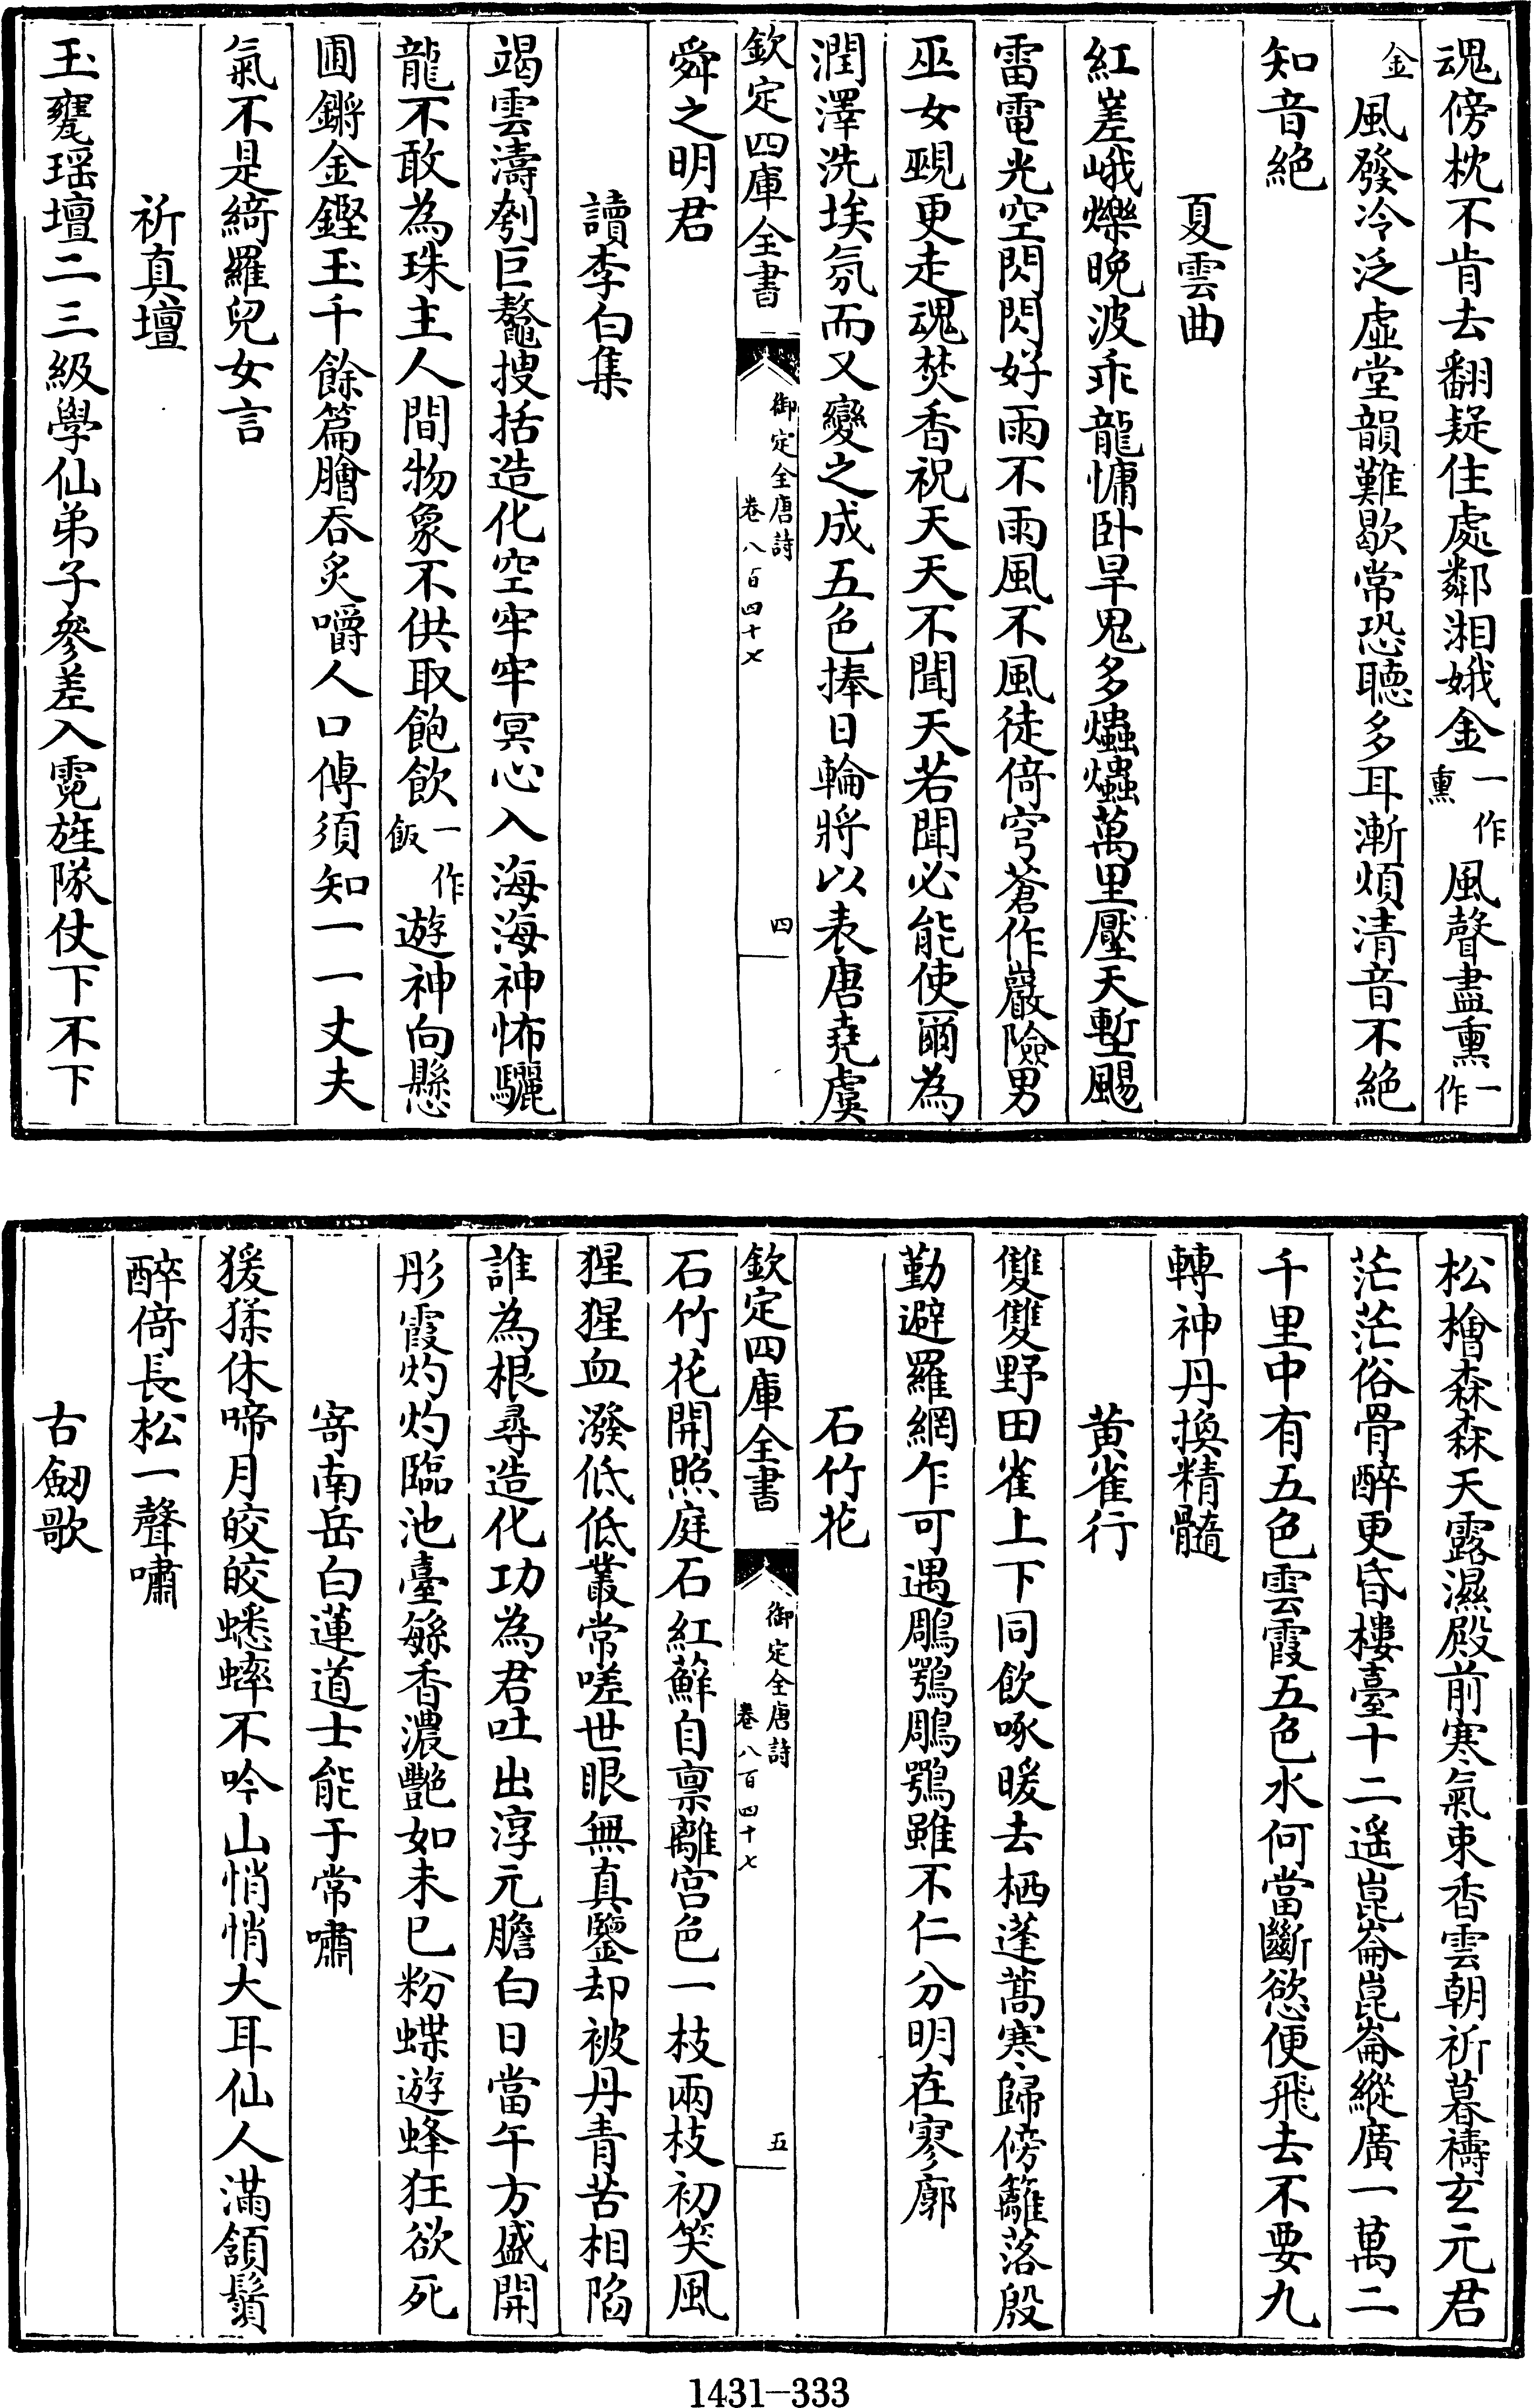 魂傍枕不肯去翻疑住處鄰湘娥金一作熏風聲盡熏一作
金風發冷泛虛堂韻難歇常恐聽多耳漸煩清音不絕
知音絕
夏雲曲
紅嵳峨爍晚波乖龍慵卧旱鬼多爞爞萬里壓天塹颺
雷電光空閃閃好雨不雨風不風徒倚穹蒼作巖險男
巫女覡更走魂焚香祝天天不聞天若聞必能使爾為
潤澤洗埃氛而又變之成五色捧日輪將以表唐堯虞
欽定四庫全書
御定全唐詩
卷八百四十七
四
舜之明君
讀李白集
竭雲濤刳巨鼇搜括造化空牢牢冥心入海海神怖驪
龍不敢為珠主人間物象不供取飽飲一作飯遊神向懸
圃鏘金鏗玉千餘篇膾吞炙嚼人口傳須知一一丈夫
氣不是綺羅兒女言
祈真壇
玉甕瑶壇二三級學仙弟子參差入霓旌隊仗下不下
松檜森森天露濕殿前寒氣束香雲朝祈暮禱玄元君
茫茫俗骨醉更昏樓臺十二遥崑崙崑崙縱廣一萬二
千里中有五色雲霞五色水何當斷慾便飛去不要九
轉神丹換精髓
黄雀行
雙雙野田雀上下同飲啄暖去栖蓬蒿寒歸傍籬落殷
勤避羅網乍可遇鵰鶚鵰鶚雖不仁分明在寥廓
石竹花
欽定四庫全書
御定全唐詩
卷八百四十七
五
石竹花開照庭石紅蘚自禀離宫色一枝兩枝初笑風
猩猩血潑低低叢常嗟世眼無真鑒却被丹青苦相陷
誰為根尋造化功為君吐出淳元膽白日當午方盛開
彤霞灼灼臨池臺繁香濃艷如未已粉蝶遊蜂狂欲死
寄南岳白蓮道士能于常嘯
猨猱休啼月皎皎蟋蟀不吟山悄悄大耳仙人滿頷鬚
醉倚長松一聲嘯
古劒歌
1431—333